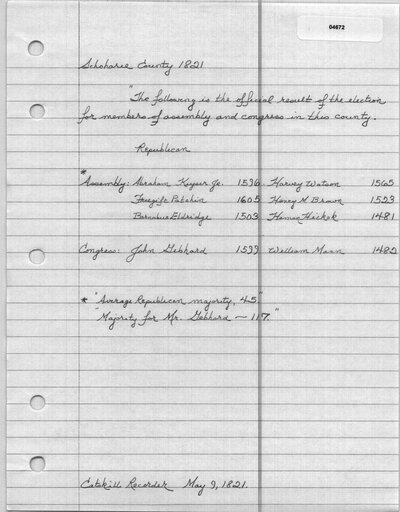 04672
Schoharie County 1821
"The following is the official result of the election
for members of assembly and congress in this county.
Republican
*
Assembly: Abraham Keyser Jr. 1596 Harvey Watson 1565
Freegift Patchin 1605 Henry M Brown 1523
Barnabus Eldridge 1503 Heman Hickok 1481
Congress: John Gebhard 1599 William Mann 1482
* "Average Republican majority, 45"
"Majority for Mr. Gebhard — 117."
Catskill Recorder May 9, 1821.